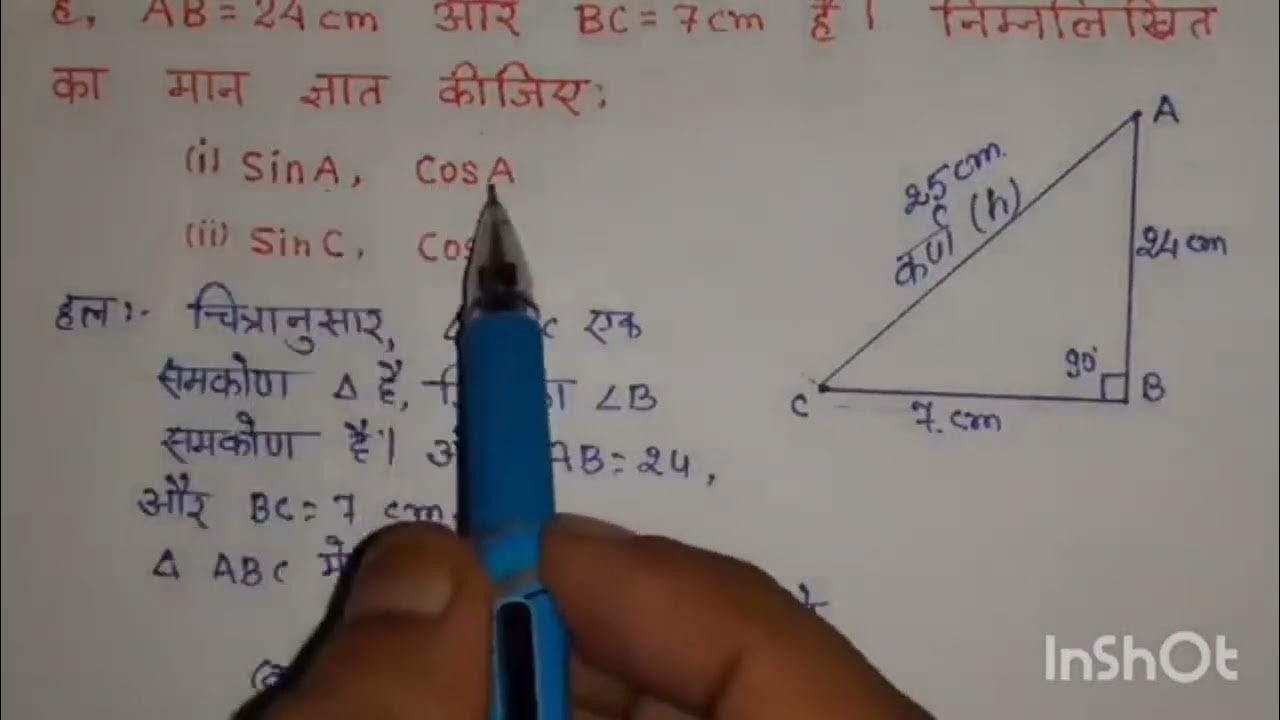 है, AB = 24 cm और BC = 7 cm है। निम्नलिखित
का मान ज्ञात कीजिए:
(i) Sin A, Cos A
(ii) Sin C, Cos
हल:- चित्रानुसार, एक
समकोण Δ है, ∠B
समकोण है। AB = 24,
और BC = 7 cm
Δ ABC में
A
25 cm.
कर्ण (h)
24 cm
90°
B
C
7 cm
InShOt